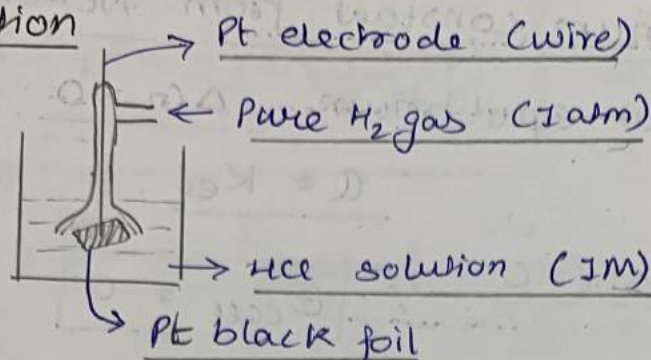 tion
Pt electrode (wire)
Pure H₂ gas (1 atm)
HCl solution (1M)
Pt black foil